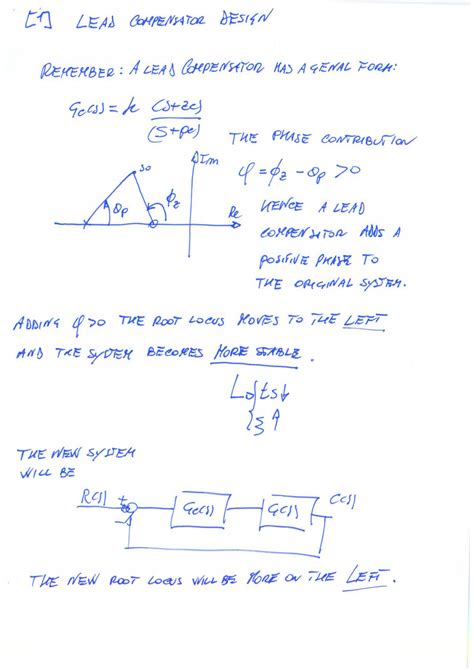 [1] LEAD COMPENSATOR DESIGN
REMEMBER: A LEAD COMPENSATOR HAS A GENAL FORM:
Gc(s) = k (s+zc)
(s+pc)
THE PHASE CONTRIBUTION
Im
so
φ = φz - θp > 0
θp
φz
Re
HENCE A LEAD
COMPENSATOR ADDS A
POSITIVE PHASE TO
THE ORIGINAL SYSTEM.
ADDING φ>0 THE ROOT LOCUS MOVES TO THE LEFT
AND THE SYSTEM BECOMES MORE STABLE.
ts↓
ξ↑
THE NEW SYSTEM
WILL BE
R(s)
+
-
Gc(s)
G(s)
C(s)
THE NEW ROOT LOCUS WILL BE MORE ON THE LEFT.